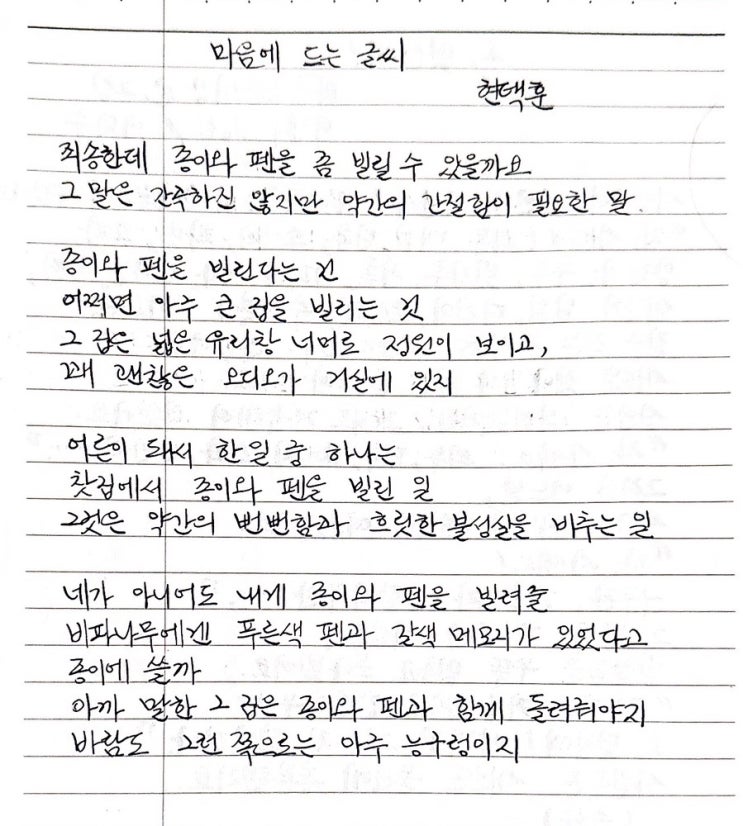 마음에 드는 글씨
현택훈
죄송한데 종이와 펜을 좀 빌릴 수 있을까요
그 말은 간죽하진 않지만 약간의 간절함이 필요한 말.
종이와 펜을 빌린다는 건
어쩌면 아주 큰 집을 빌리는 것
그 집은 넓은 유리창 너머로 정원이 보이고,
꽤 괜찮은 오디오가 거실에 있지
어른이 돼서 한 일 중 하나는
찻집에서 종이와 펜을 빌린 일
그것은 약간의 번뻔함과 흐릿한 불성실을 비추는 일
네가 아니어도 내게 종이와 펜을 빌려줄
비파나무에겐 푸른색 펜과 갈색 메모리가 있었다고
종이에 쓸까
아까 말한 그 집은 종이와 펜과 함께 돌려줘야지
바람도 그런 쪽으로는 아주 능구렁이지